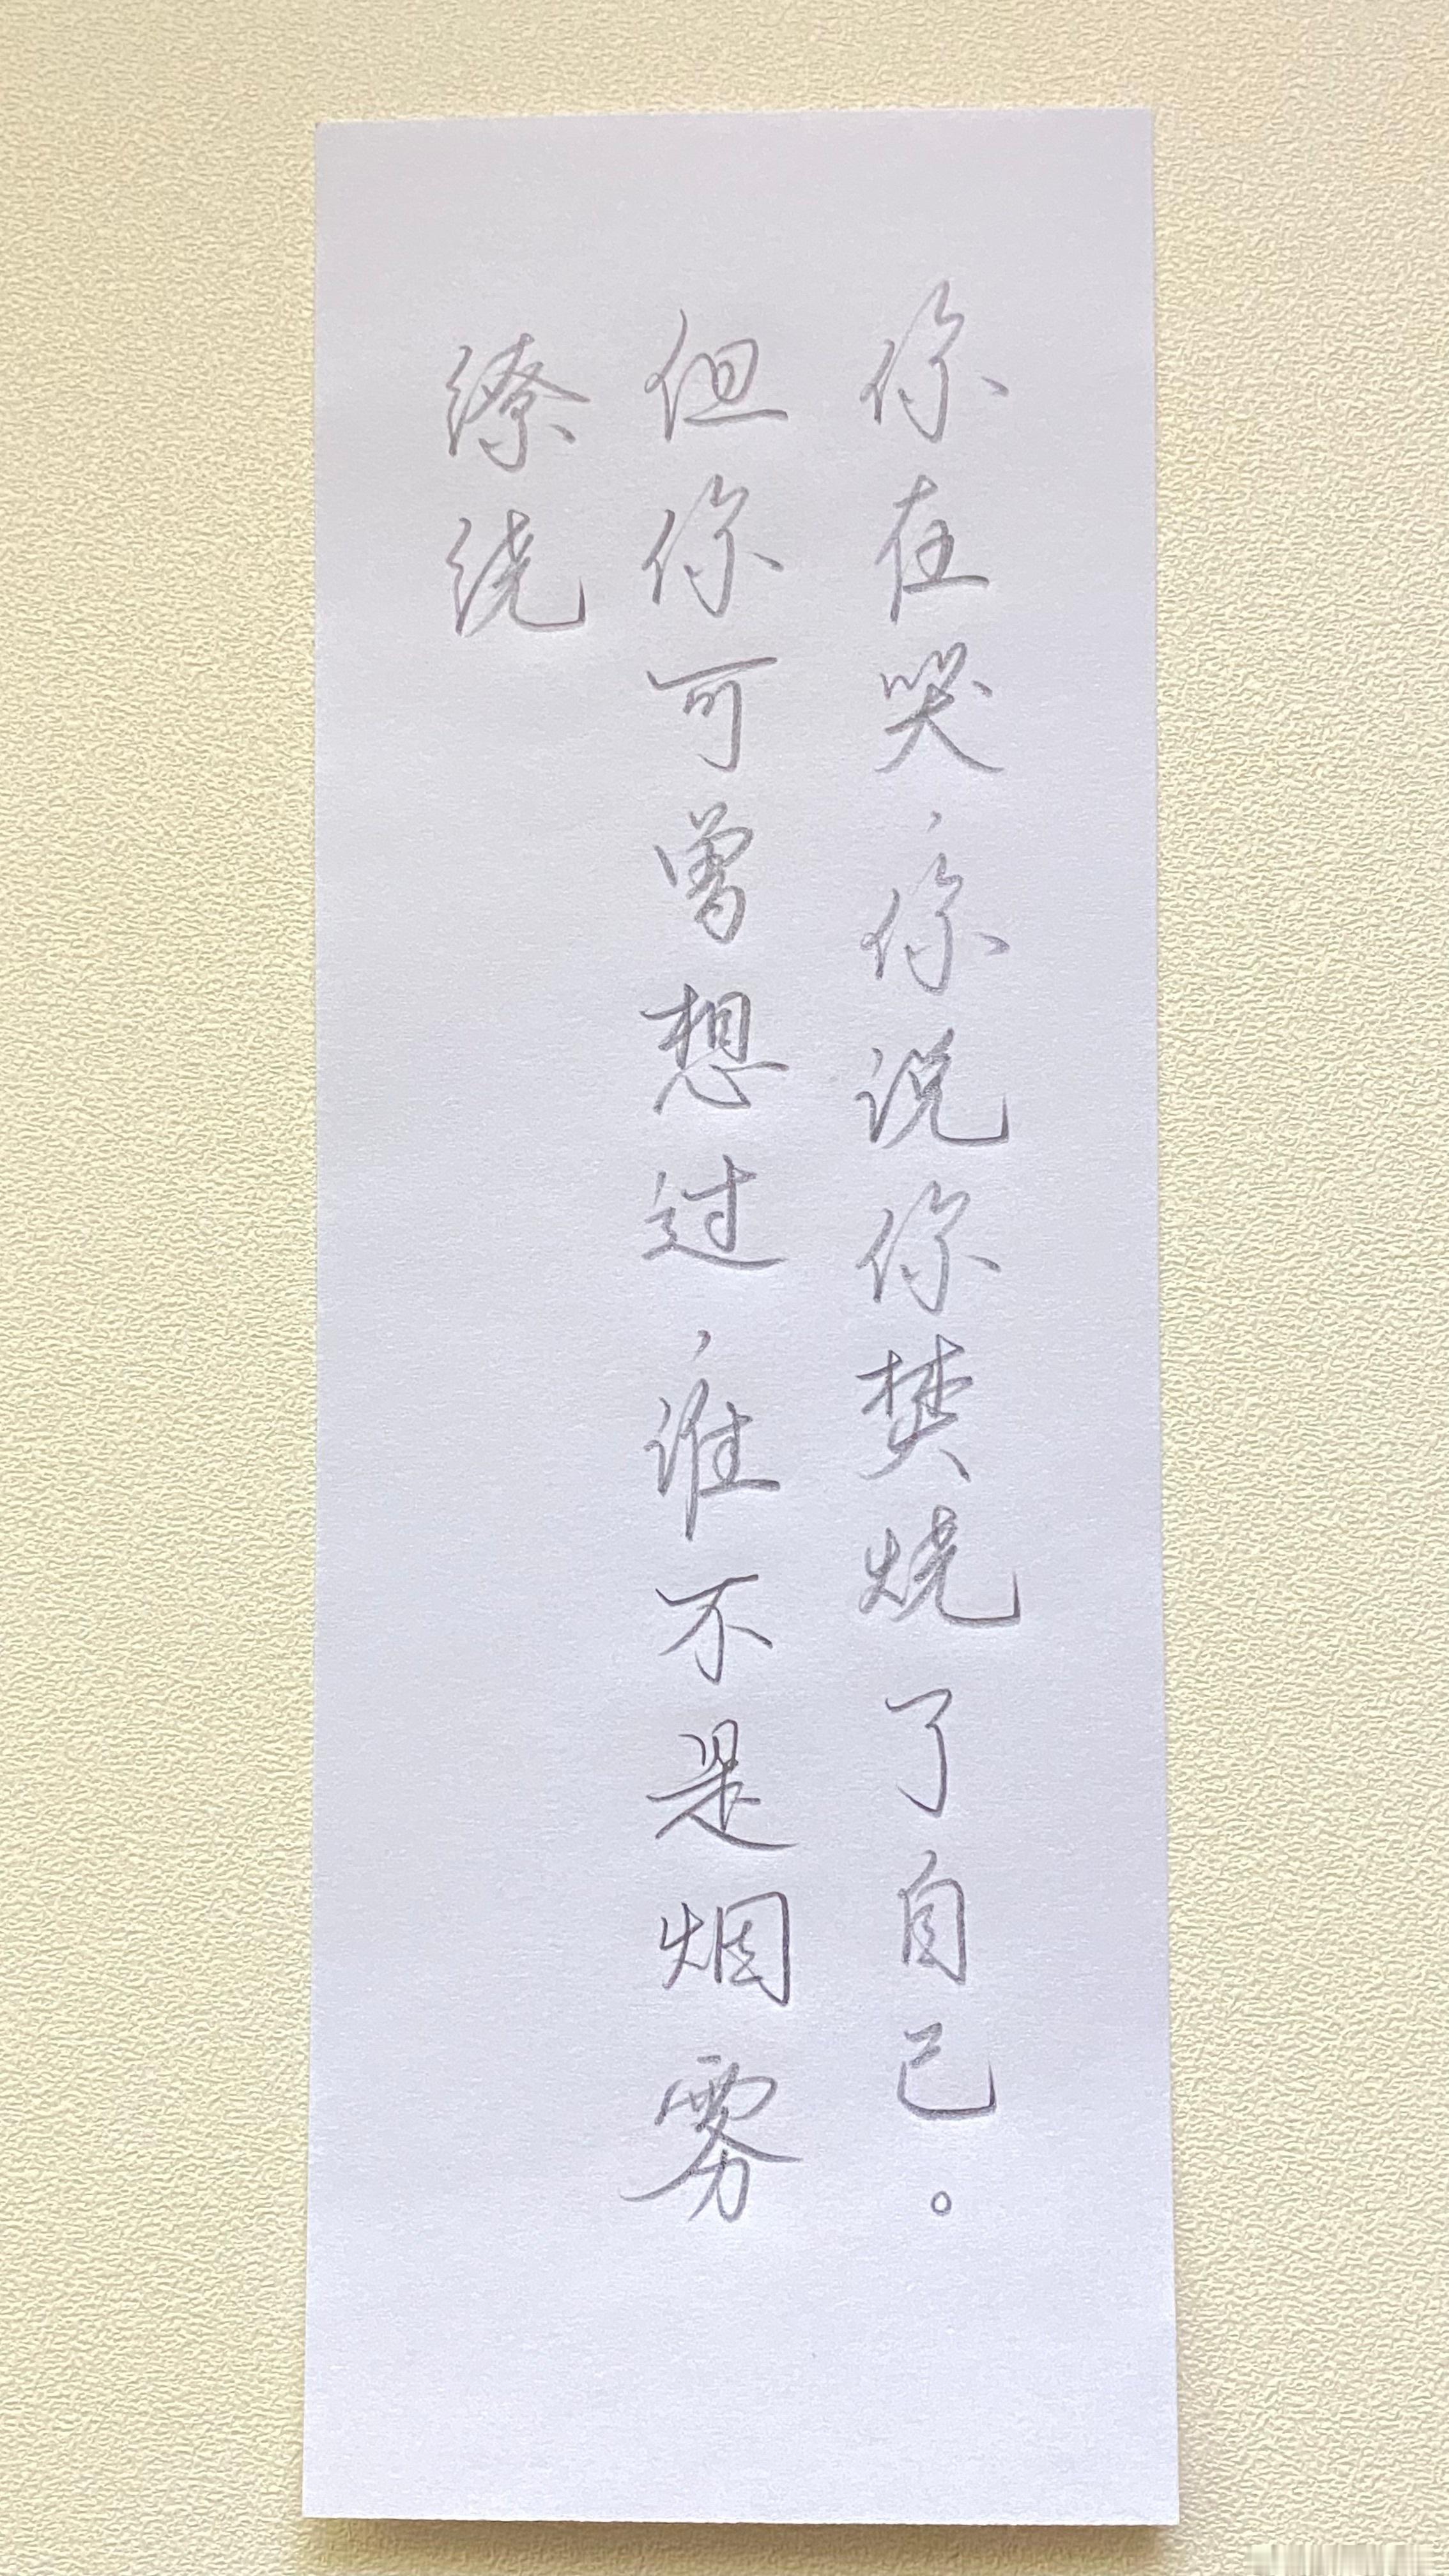 你在哭，你说你焚烧了自己。
但你可曾想过，谁不是烟雾
缭绕